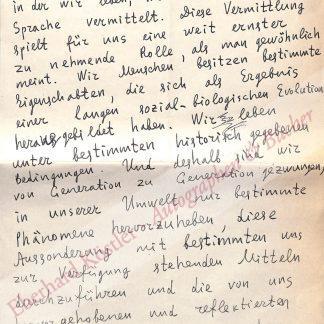 in der wir leben,
Sprache vermittelt. Diese Vermittlung
spielt für uns eine weit ernster
zu nehmende Rolle, als man gewöhnlich
meint. Wir Menschen, besitzen bestimmte
Eigenschaften, die sich als Ergebnis
einer langen sozial-biologischen Evolution
herausgebildet haben. Wir leben
unter bestimmten historisch gegebenen
Bedingungen. Und deshalb sind wir
von Generation zu Generation gezwungen,
in unserer Umwelt nur bestimmte
Phänomene hervorzuheben, diese
Aussonderung mit bestimmten uns
zur Verfügung stehenden Mitteln
durchzuführen und die von uns
hervorgehobenen und reflektierten
Eberhard Köstler Autographen & Bücher